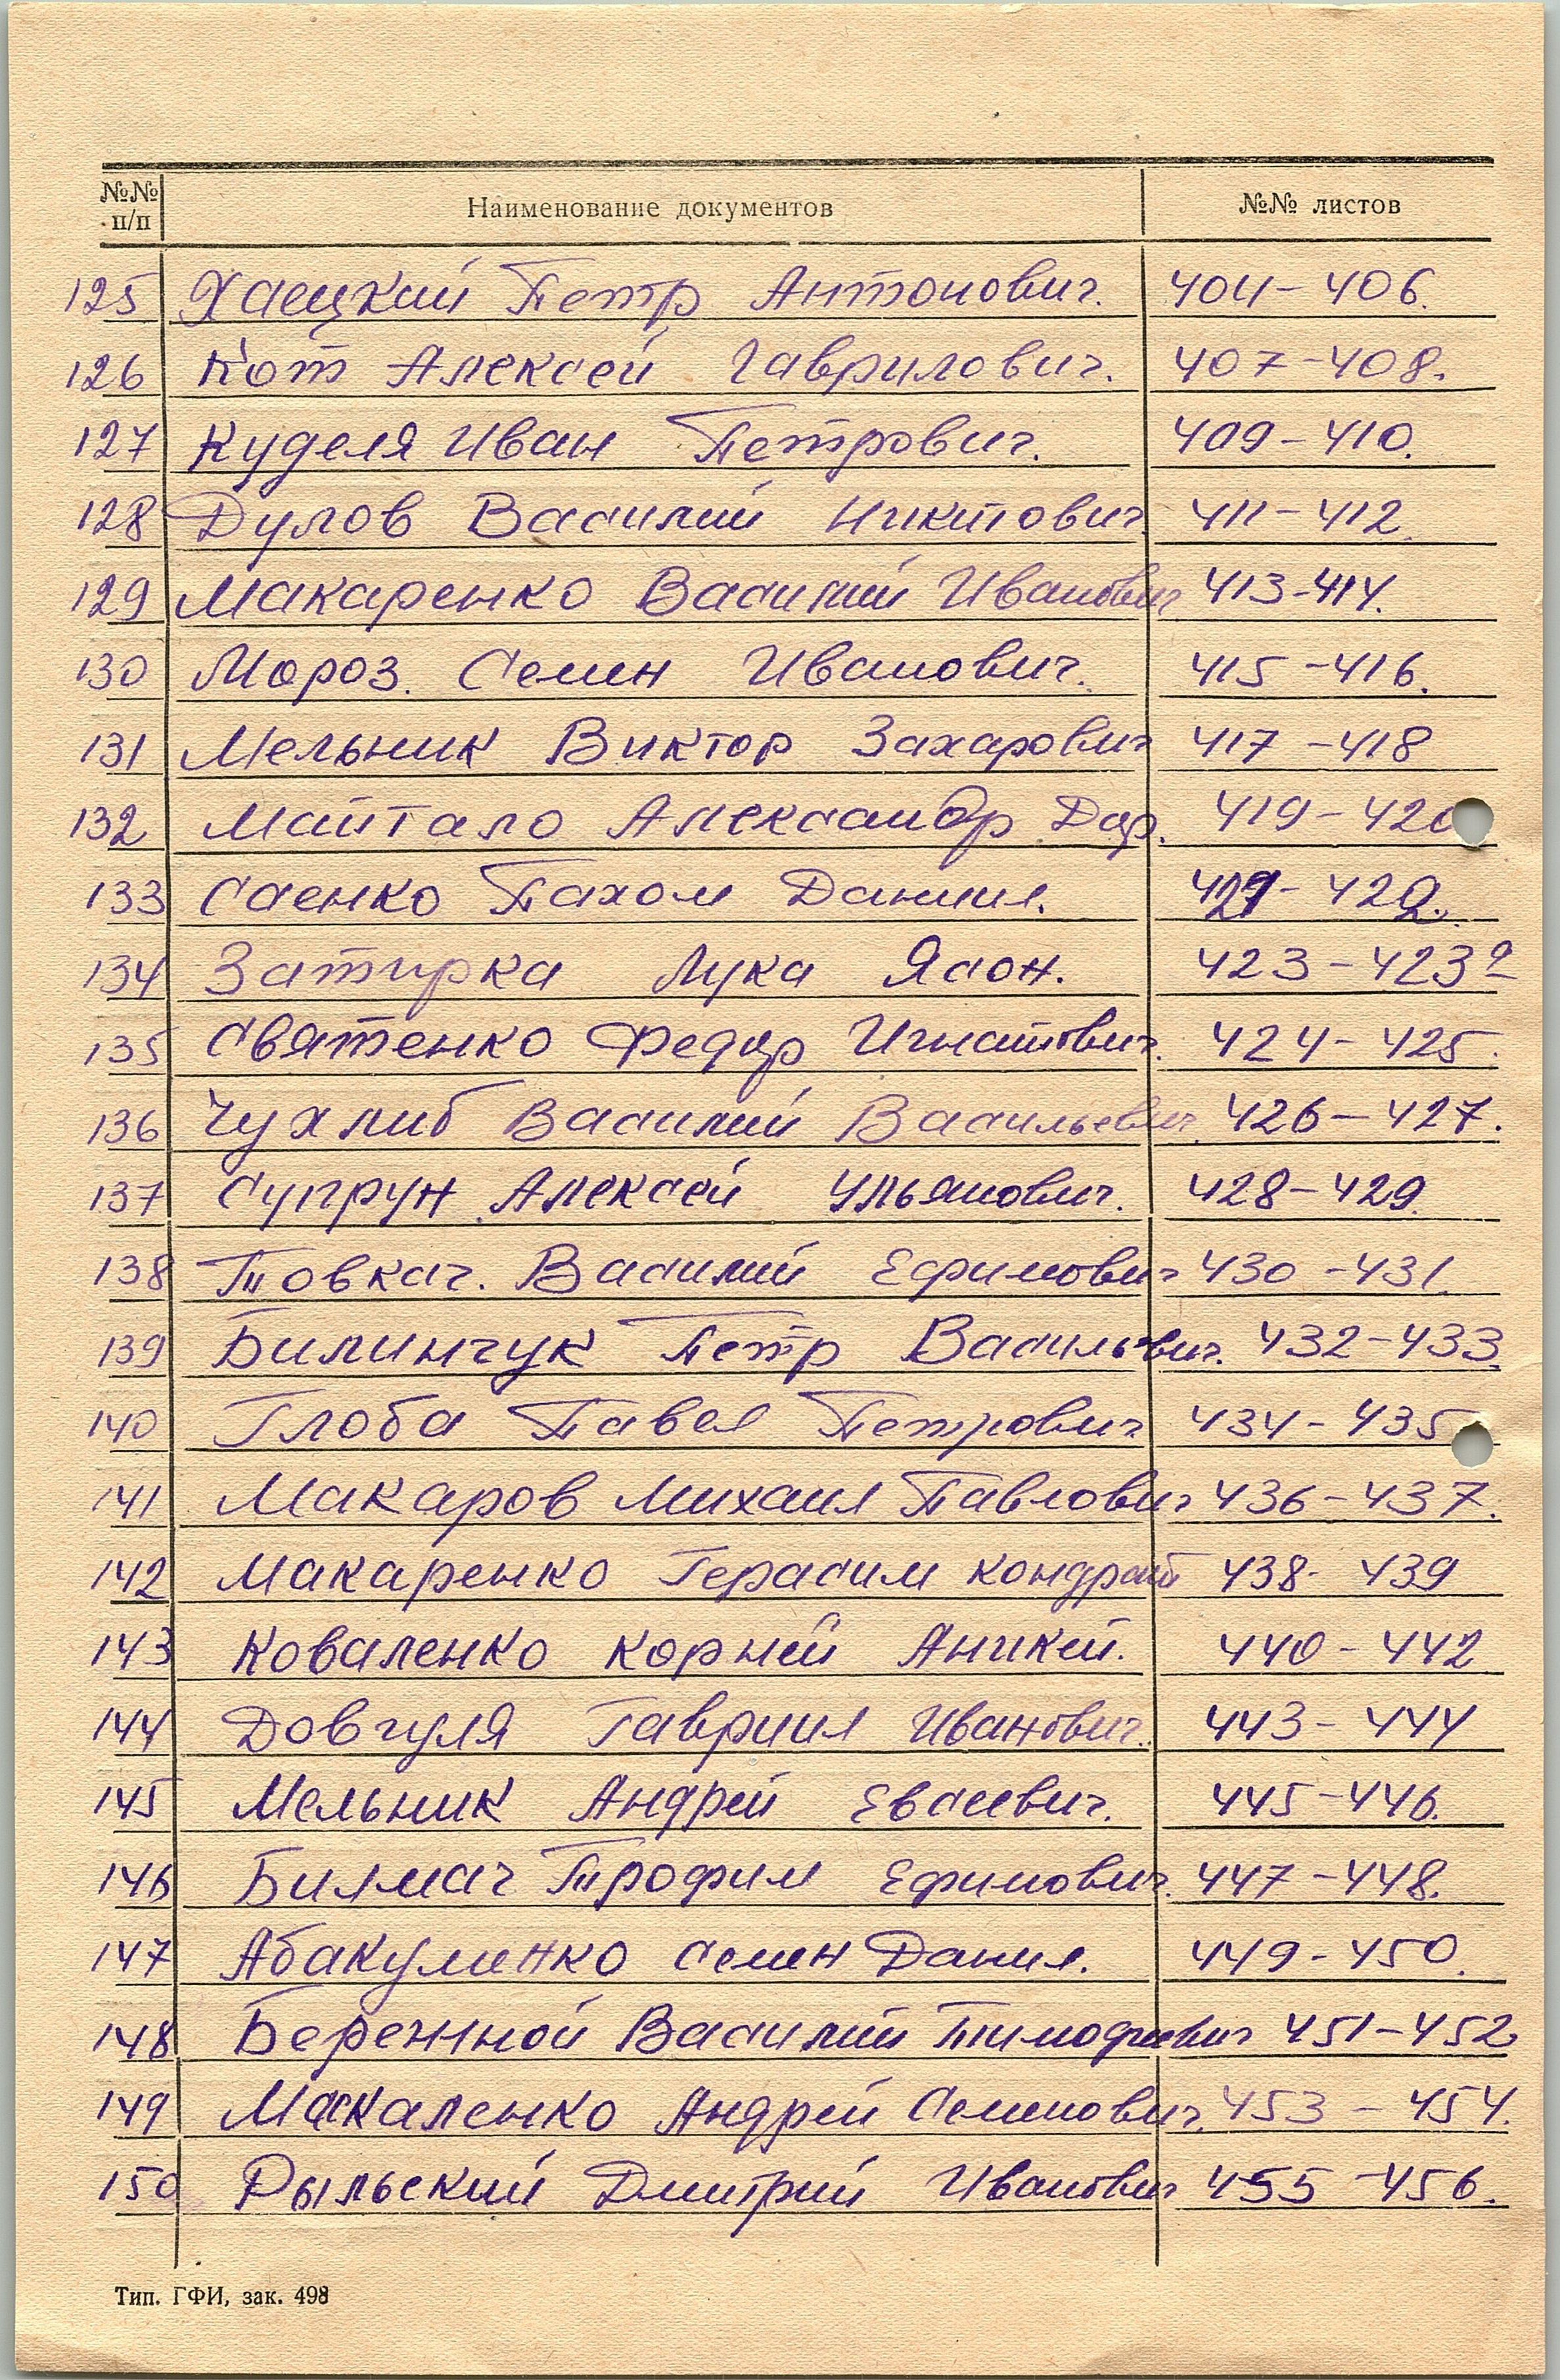 №№ п/п Наименование документов №№ листов
125 Хаецкий Петр Антонович. 404-406.
126 Кот Алексей Гаврилович. 407-408.
127 Куделя Иван Петрович. 409-410.
128 Дулов Василий Никитович 411-412.
129 Макаренко Василий Иванович 413-414.
130 Мороз. Семен Иванович. 415-416.
131 Мельник Виктор Захарович 417-418
132 Майтало Александр Дор. 419-420
133 Саенко Пахом Даниил. 421-422.
134 Затирка Лука Ясон. 423-423а
135 Святенко Федор Игнатович. 424-425.
136 Чухлиб Василий Васильевич. 426-427.
137 Супрун Алексей Ульянович. 428-429.
138 Товкач. Василий Ефимович 430-431.
139 Билинчук Петр Васильевич. 432-433.
140 Глоба Павел Петрович 434-435
141 Макаров Михаил Павлович 436-437.
142 Макаренко Герасим Кондрат 438-439
143 Коваленко Корней Аникей. 440-442
144 Довгуля Гавриил Иванович. 443-444
145 Мельник Андрей Евсеевич. 445-446.
146 Билмач Трофим Ефимович. 447-448.
147 Абакуменко Семен Данил. 449-450.
148 Бережной Василий Тимофеевич 451-452
149 Макаленко Андрей Семенович. 453-454.
150 Рыльский Дмитрий Иванович 455-456.
Тип. ГФИ, зак. 498